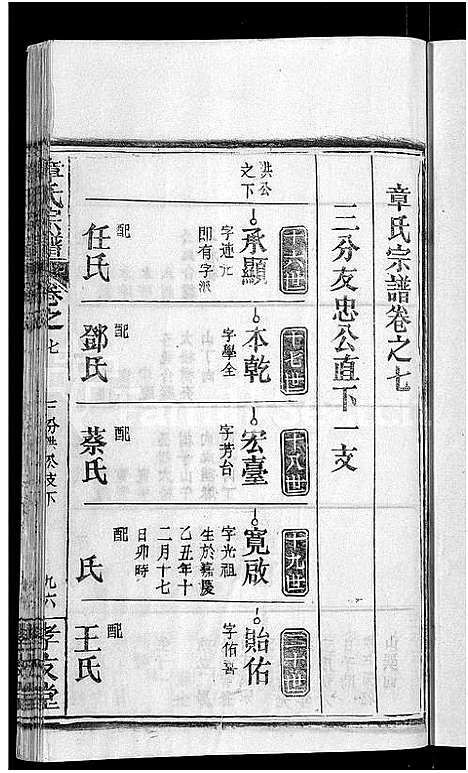 章氏宗譜卷之七
三分友忠公直下一支
洪公之下
十六世
承顯
字連元
即有字派
配
任氏
十七世
本乾
字學全
配
鄧氏
十八世
宏臺
字芳台
配
蔡氏
十九世
寬啟
字光祖
生於嘉慶
乙丑年十
二月十七
日卯時
配
氏
二十世
貽佑
字佑
配
王氏
章氏宗譜
卷之七
九六
孝友堂